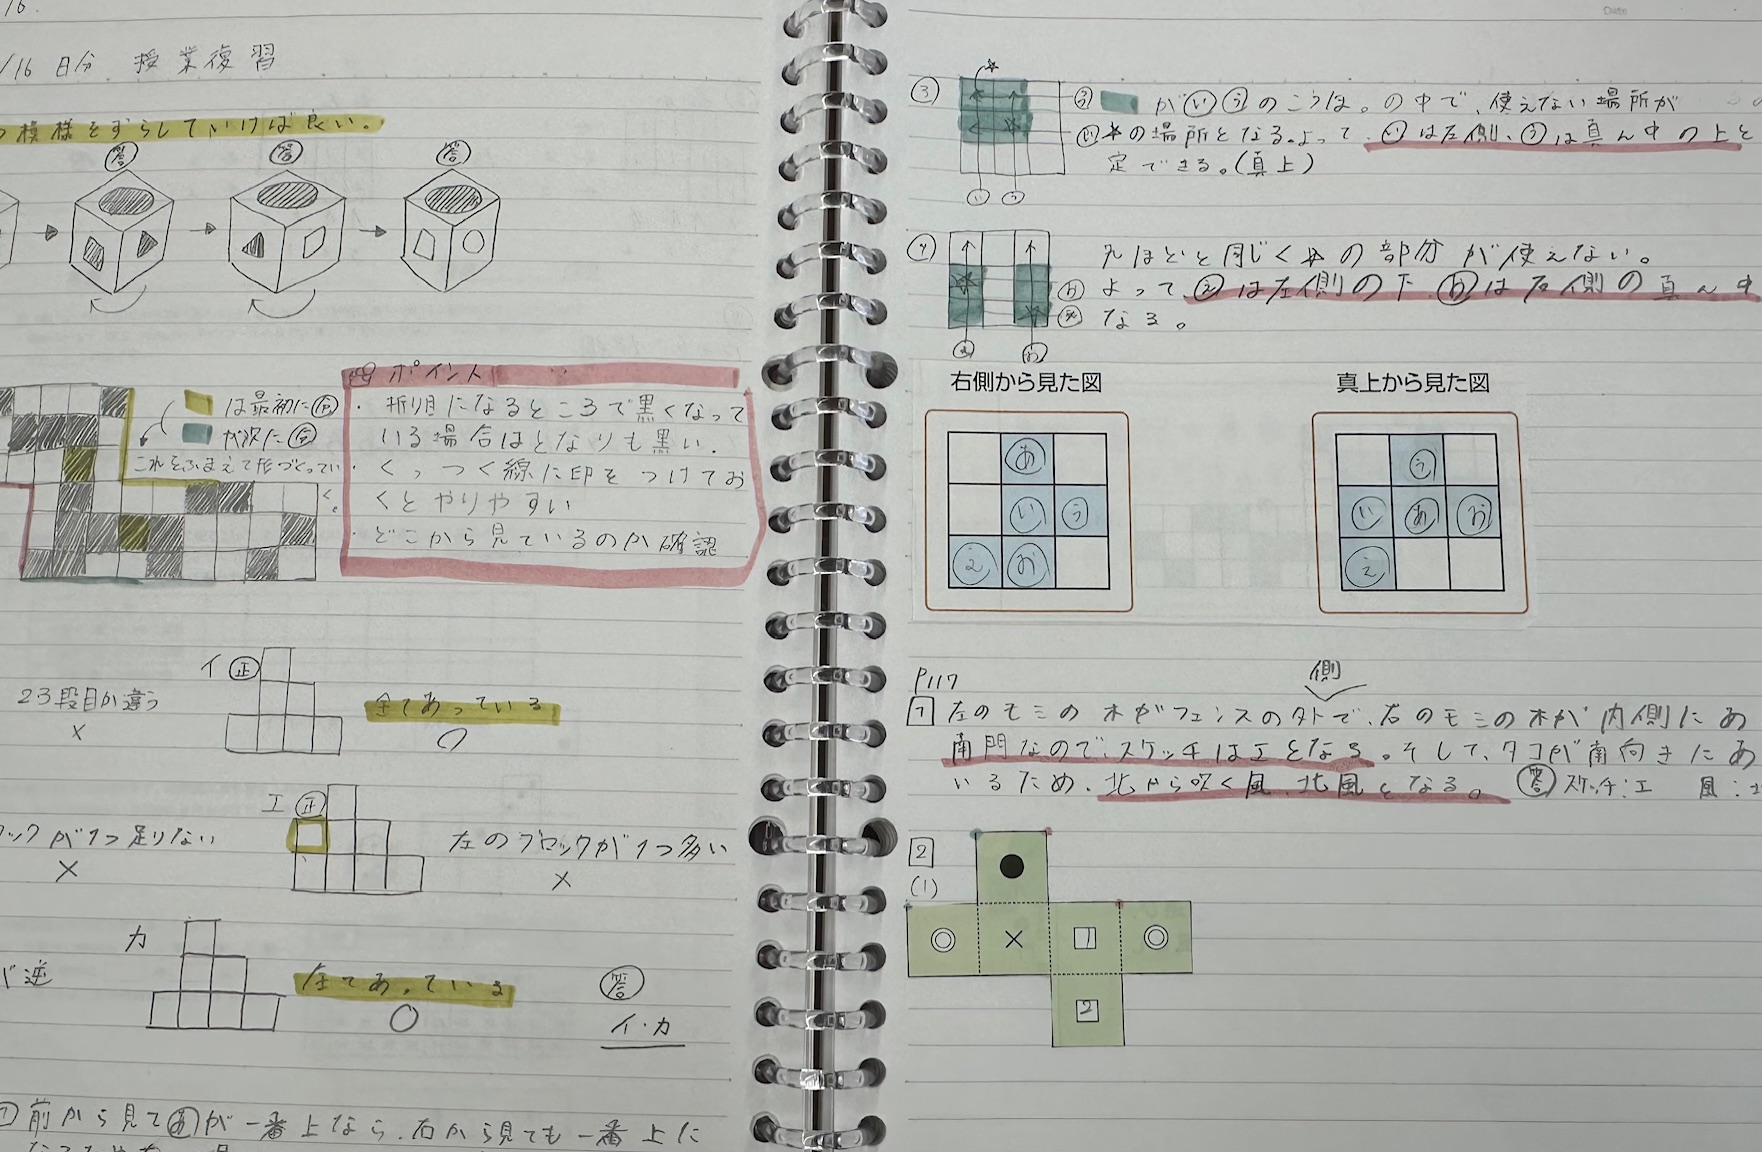 /16.
/16日分 授業復習
模様をずらしていけば良い。
答
答
答
は最初に合
が次に合
これをふまえて形づくってい
ポイント
・折り目になるところで黒くなって
いる場合はとなりも黒い.
・くっつく線に印をつけてお
くとやりやすい
・どこから見ているのか確認
イ 正
23段目が違う
×
全てあっている
○
エ 正
ックが1つ足りない
×
左のブロックが1つ多い
×
カ
が逆
全てあっている
○
答
イ・カ
① 前から見てあが一番上なら、右から見ても一番上に
Date
③
う がいうのこうほ。の中で、使えない場所が
い ☆の場所となる。よって、いは左側、うは真ん中の上と
定できる。(真上)
い う
④
先ほどと同じく☆の部分が使えない。
お よって、えは左側の下、おは右側の真ん中
え なる。
え お
右側から見た図
あ
い う
え お
真上から見た図
う
い あ お
え
P117
側
1 左のモミの木がフェンスの外で、右のモミの木が内側にあ
南門なので、スケッチはエとなる。そして、タコが南向きにあ
いるため、北から吹く風、北風となる。 答 スケッチ:エ 風:北
2
(1)
● 
◎ × 1 ◎
2